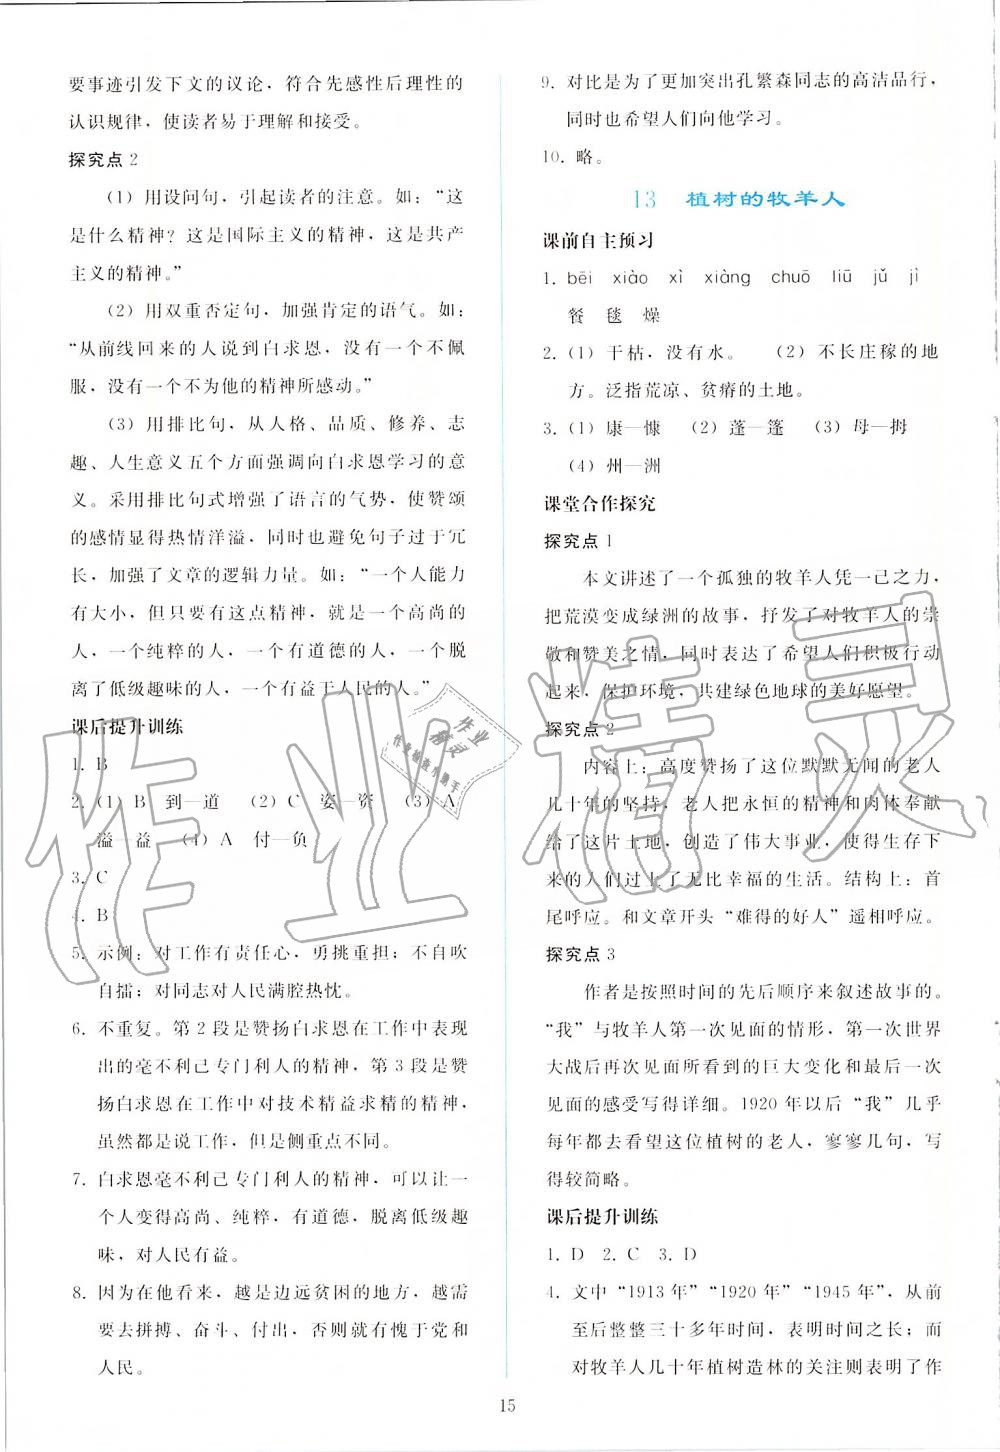 要事迹引发下文的议论，符合先感性后理性的
认识规律，使读者易于理解和接受。
探究点 2
（1）用设问句，引起读者的注意。如：“这
是什么精神？这是国际主义的精神，这是共产
主义的精神。”
（2）用双重否定句，加强肯定的语气。如：
“从前线回来的人说到白求恩，没有一个不佩
服，没有一个不为他的精神所感动。”
（3）用排比句，从人格、品质、修养、志
趣、人生意义五个方面强调向白求恩学习的意
义。采用排比句式增强了语言的气势，使赞颂
的感情显得热情洋溢，同时也避免句子过于冗
长，加强了文章的逻辑力量。如：“一个人能力
有大小，但只要有这点精神，就是一个高尚的
人，一个纯粹的人，一个有道德的人，一个脱
离了低级趣味的人，一个有益于人民的人。”
课后提升训练
1. B
2.（1）B 到—道 （2）C 姿—资 （3）A
溢—益 （4）A 付—负
3. C
4. B
5. 示例：对工作有责任心，勇挑重担；不自吹
自擂；对同志对人民满腔热忱。
6. 不重复。第 2 段是赞扬白求恩在工作中表现
出的毫不利己专门利人的精神，第 3 段是赞
扬白求恩在工作中对技术精益求精的精神，
虽然都是说工作，但是侧重点不同。
7. 白求恩毫不利己专门利人的精神，可以让一
个人变得高尚、纯粹，有道德，脱离低级趣
味，对人民有益。
8. 因为在他看来，越是边远贫困的地方，越需
要去拼搏、奋斗、付出，否则就有愧于党和
人民。
9. 对比是为了更加突出孔繁森同志的高洁品行，
同时也希望人们向他学习。
10. 略。
13 植树的牧羊人
课前自主预习
1. bēi xiào xì xiàng chuō liū jǔ jì
餐 毯 燥
2.（1）干枯，没有水。 （2）不长庄稼的地
方。泛指荒凉、贫瘠的土地。
3.（1）康—慷 （2）蓬—篷 （3）母—拇
（4）州—洲
课堂合作探究
探究点 1
本文讲述了一个孤独的牧羊人凭一己之力，
把荒漠变成绿洲的故事，抒发了对牧羊人的崇
敬和赞美之情，同时表达了希望人们积极行动
起来，保护环境，共建绿色地球的美好愿望。
探究点 2
内容上：高度赞扬了这位默默无闻的老人
几十年的坚持，老人把永恒的精神和肉体奉献
给了这片土地，创造了伟大事业，使得生存下
来的人们过上了无比幸福的生活。结构上：首
尾呼应。和文章开头“难得的好人”遥相呼应。
探究点 3
作者是按照时间的先后顺序来叙述故事的。
“我”与牧羊人第一次见面的情形，第一次世界
大战后再次见面所看到的巨大变化和最后一次
见面的感受写得详细。1920 年以后“我”几乎
每年都去看望这位植树的老人，寥寥几句，写
得较简略。
课后提升训练
1. D 2. C 3. D
4. 文中“1913 年”“1920 年”“1945 年”，从前
至后整整三十多年时间，表明时间之长；而
对牧羊人几十年植树造林的关注则表明了作
15
作业精灵
作业
精灵
作业检查小助手